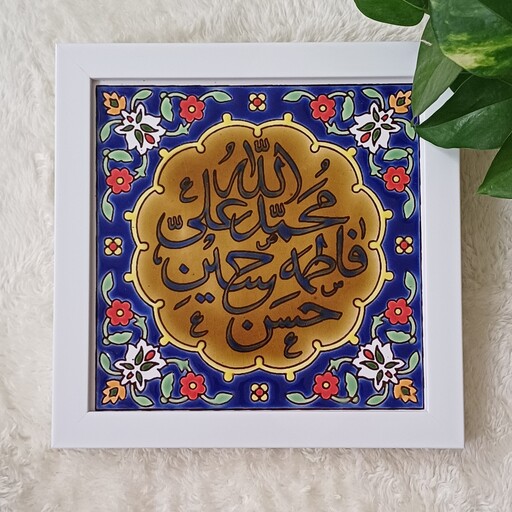 الله
محمد علی
فاطمه حسین
حسن